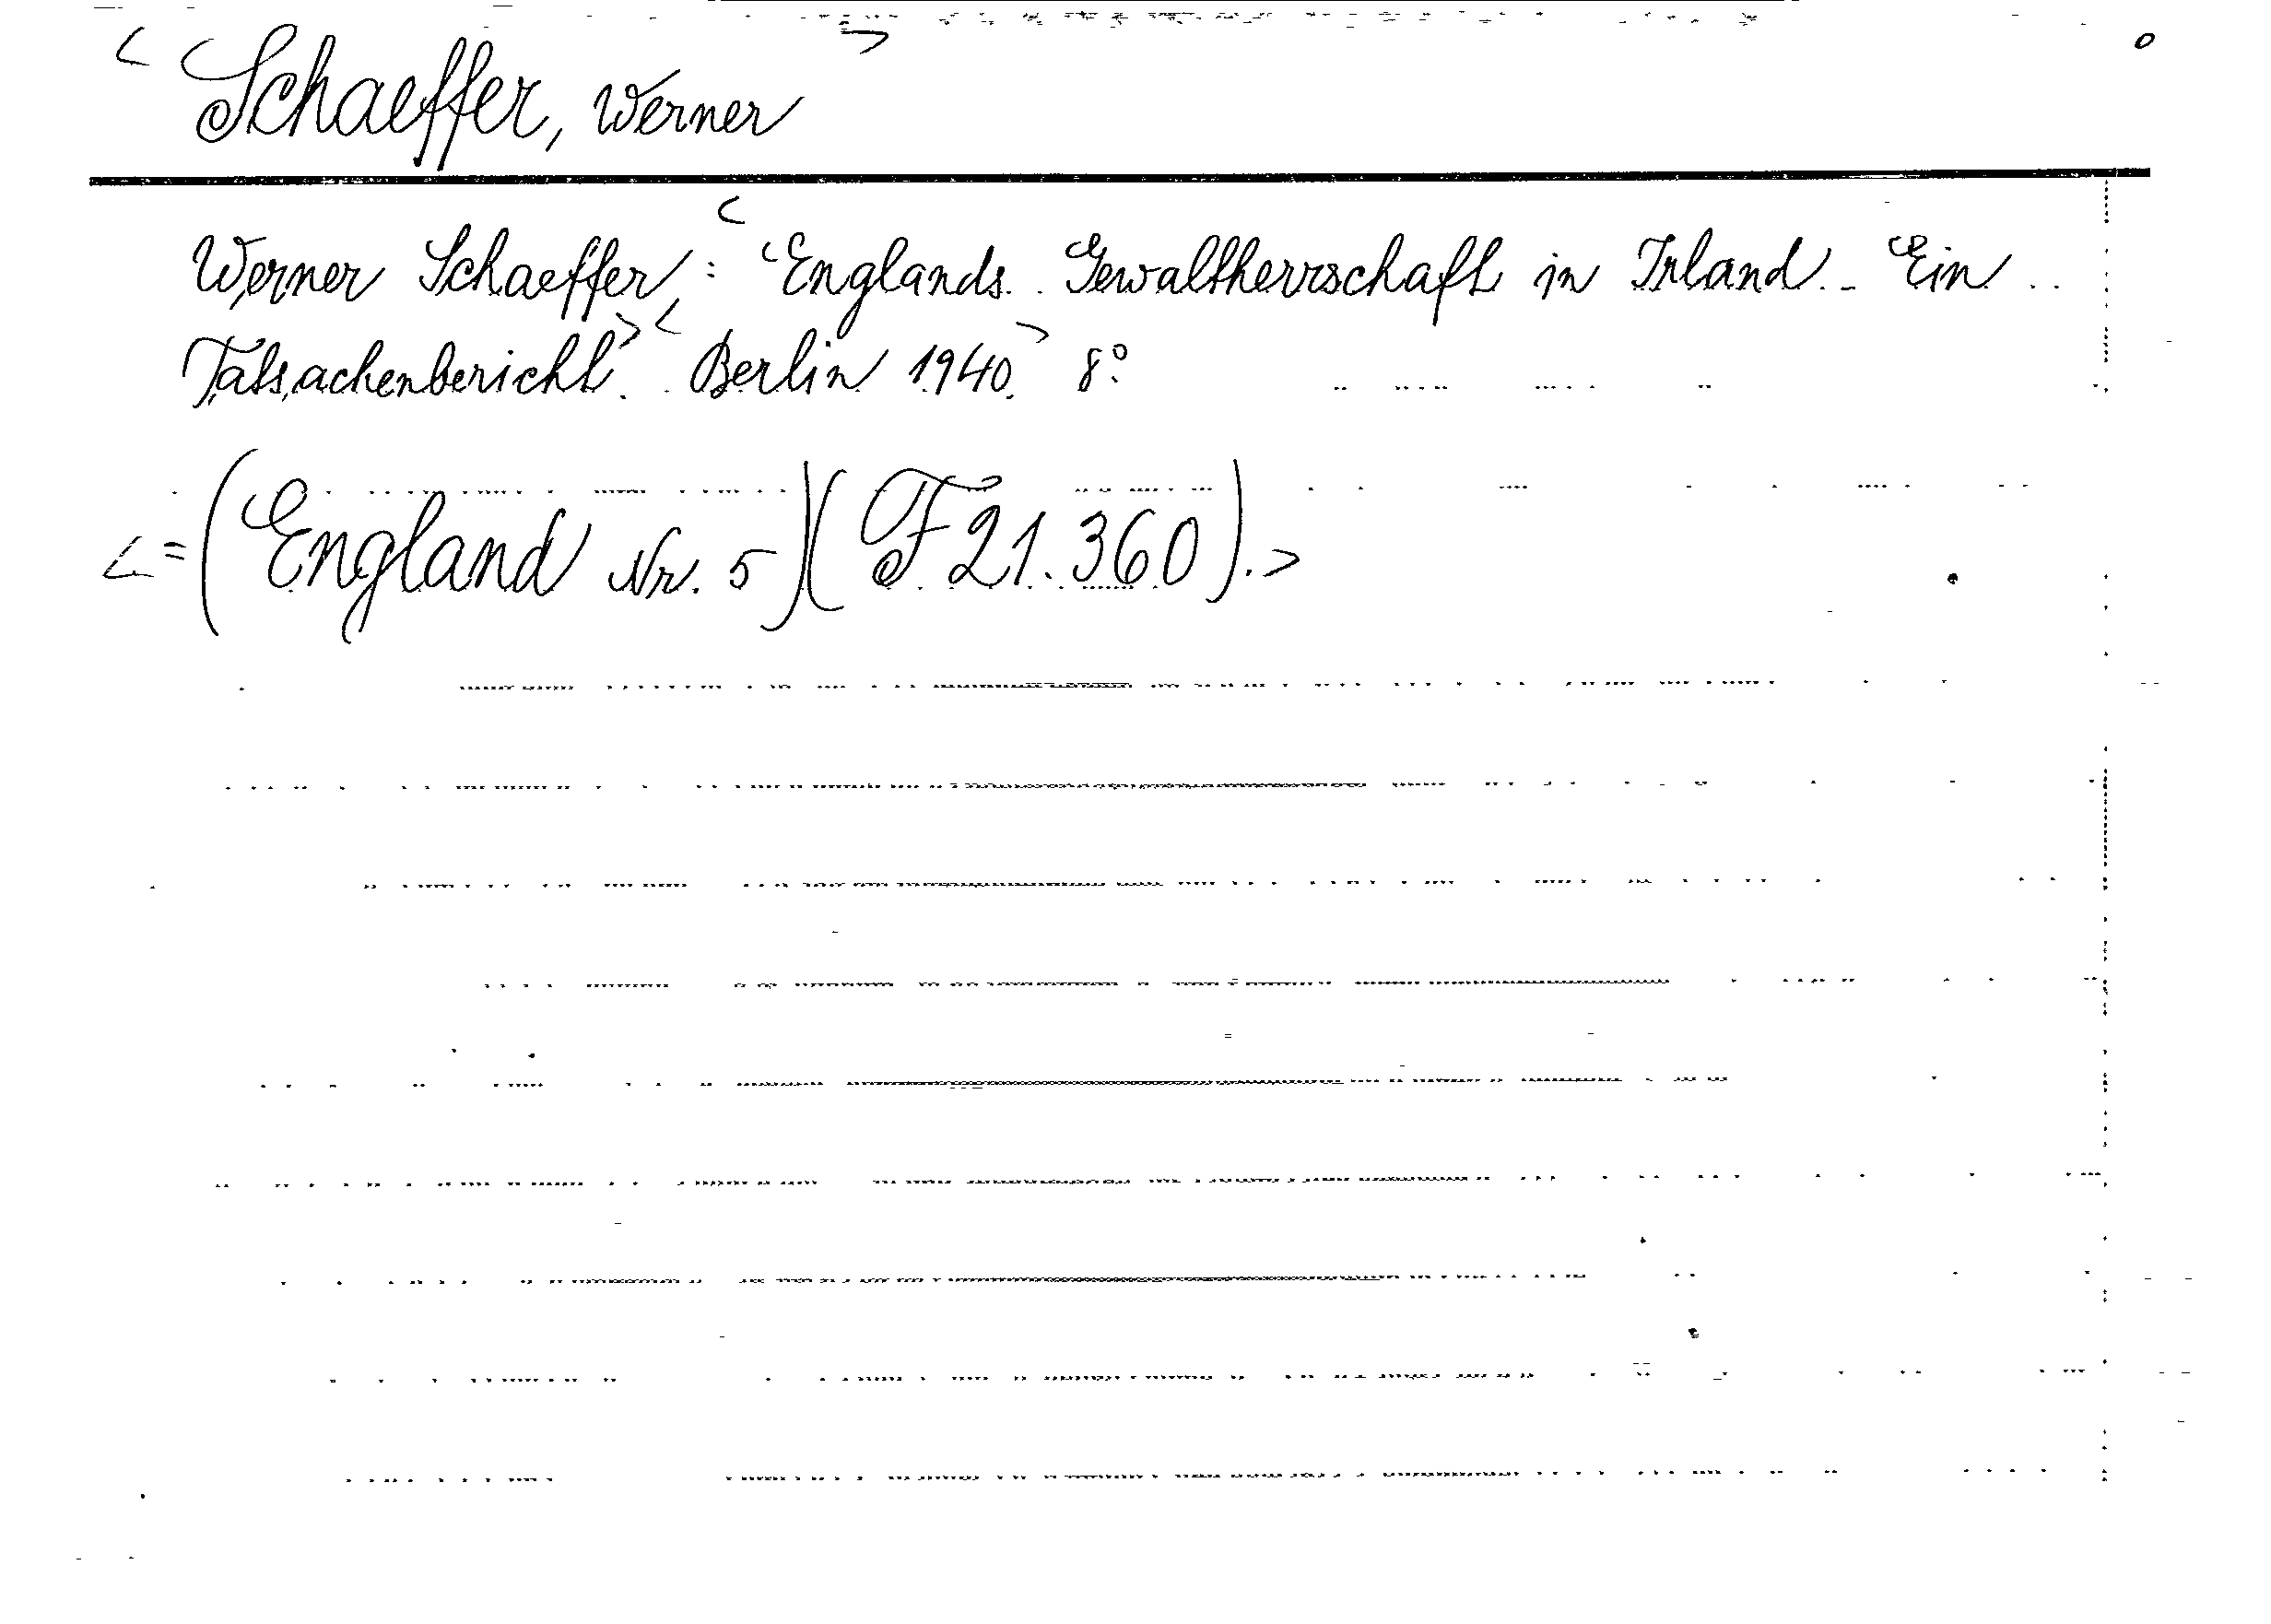 < Schaeffer, Werner >
Werner Schaeffer: < Englands Gewaltherrschaft in Irland. Ein
Tatsachenbericht. > < Berlin 1940. > 8°.
< = (England Nr. 5) (F 21.360). >